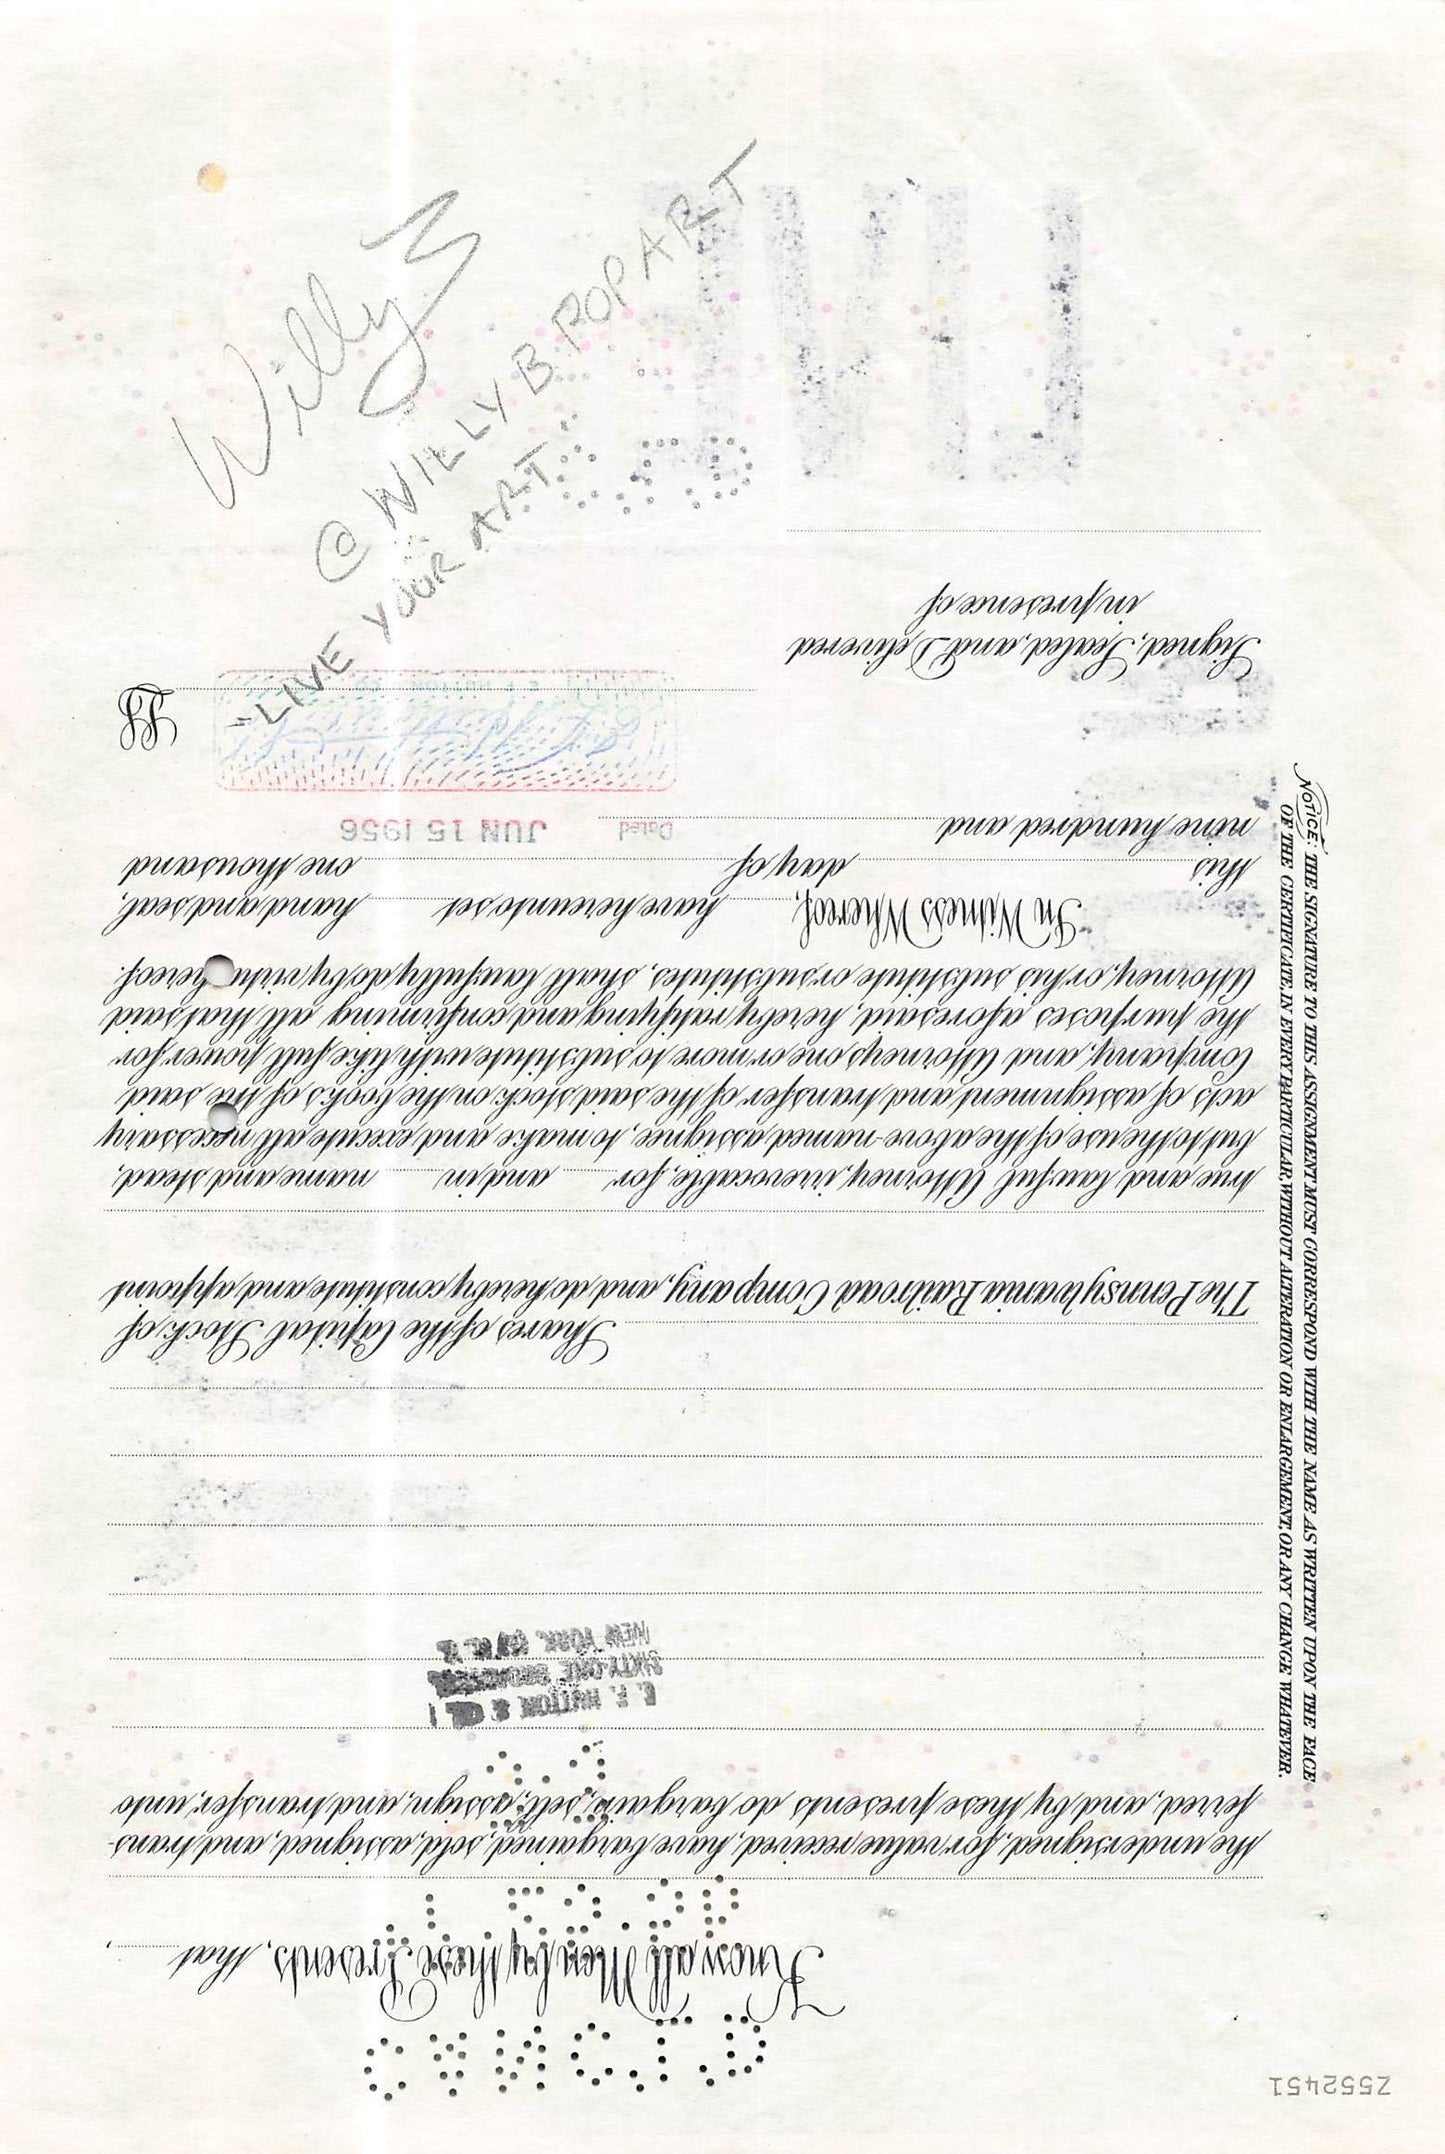 Z552451
CANC'L'D
Know all Men by these Presents, that
the undersigned, for value received, have bargained, sold, assigned, and trans-
ferred, and by these presents do bargain, sell, assign, and transfer, unto
E. F. HUTTON & CO.
SIXTY-ONE BROADWAY
NEW YORK
Shares of the Capital Stock of
The Pennsylvania Railroad Company, and do hereby constitute and appoint
true and lawful Attorney, irrevocable, for and in name and stead,
but to the use of the above-named assignee, to make and execute all necessary
acts of assignment and transfer of the said stock on the books of the said
Company, and Attorneys one or more to substitute with like full power for
the purposes aforesaid, hereby ratifying and confirming all that said
Attorney, or his substitute or substitutes, shall lawfully do by virtue hereof.
In Witness Whereof, have hereunto set hand and seal,
this day of one thousand
nine hundred and
Dated JUN 15 1956
LS
Signed, Sealed, and Delivered
in presence of
NOTICE: THE SIGNATURE TO THIS ASSIGNMENT MUST CORRESPOND WITH THE NAME AS WRITTEN UPON THE FACE
OF THE CERTIFICATE, IN EVERY PARTICULAR, WITHOUT ALTERATION OR ENLARGEMENT, OR ANY CHANGE WHATEVER.
Willy B
@ WILLY B. POP ART
"LIVE YOUR ART